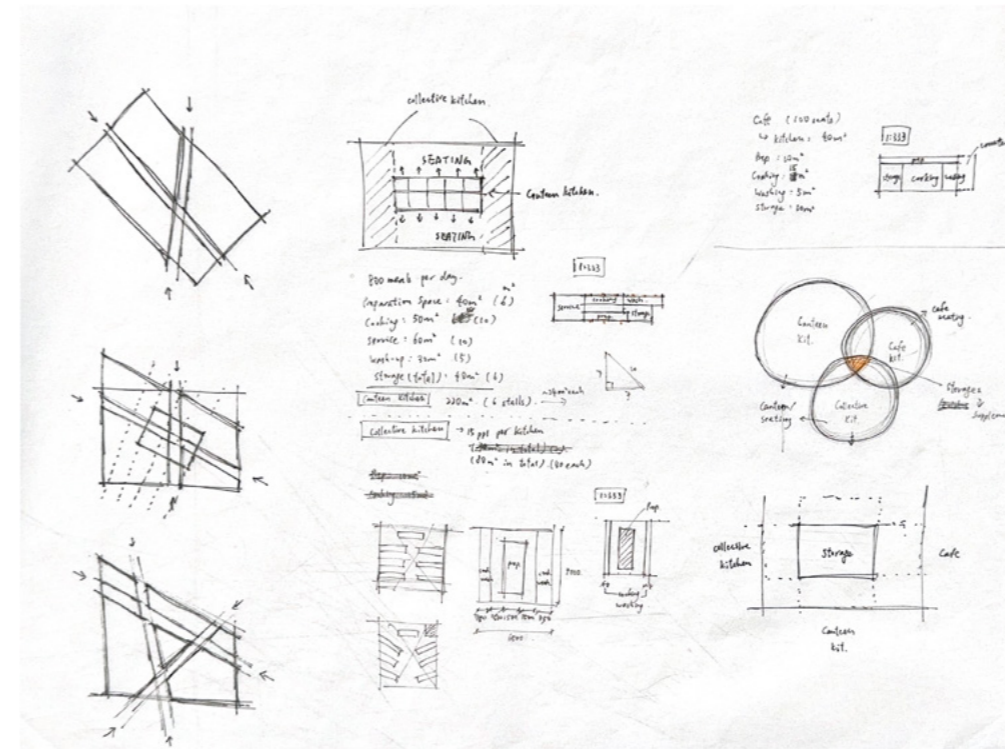 collective kitchen.
SEATING
Canteen kitchen.
SEATING
800 meals per day.
m²
Preparation Space : 40m² (6)
Cooking : 50m² (10)
service : 60m² (10)
wash-up : 30m² (5)
Storage (total) : 40m² (6)
Canteen kitchen
220m². (6 stalls).
Collective kitchen
→ 15 ppl per kitchen
in total) (80 each)
1:333
service
cooking
wash.
prep.
storage
1:333
Prep.
prep
cooking
washing
Cafe (100 seats)
↳ kitchen : 40m²
Prep : 10m²
Cooking : 15m²
Washing : 5m²
Storage : 10m²
1:333
prep
storage
cooking
washing
Canteen
Kit.
Cafe
kit.
cafe
seating.
Collective
Kit.
Canteen/
seating
Storages
collective
kitchen
Storage
Cafe
Canteen
kit.